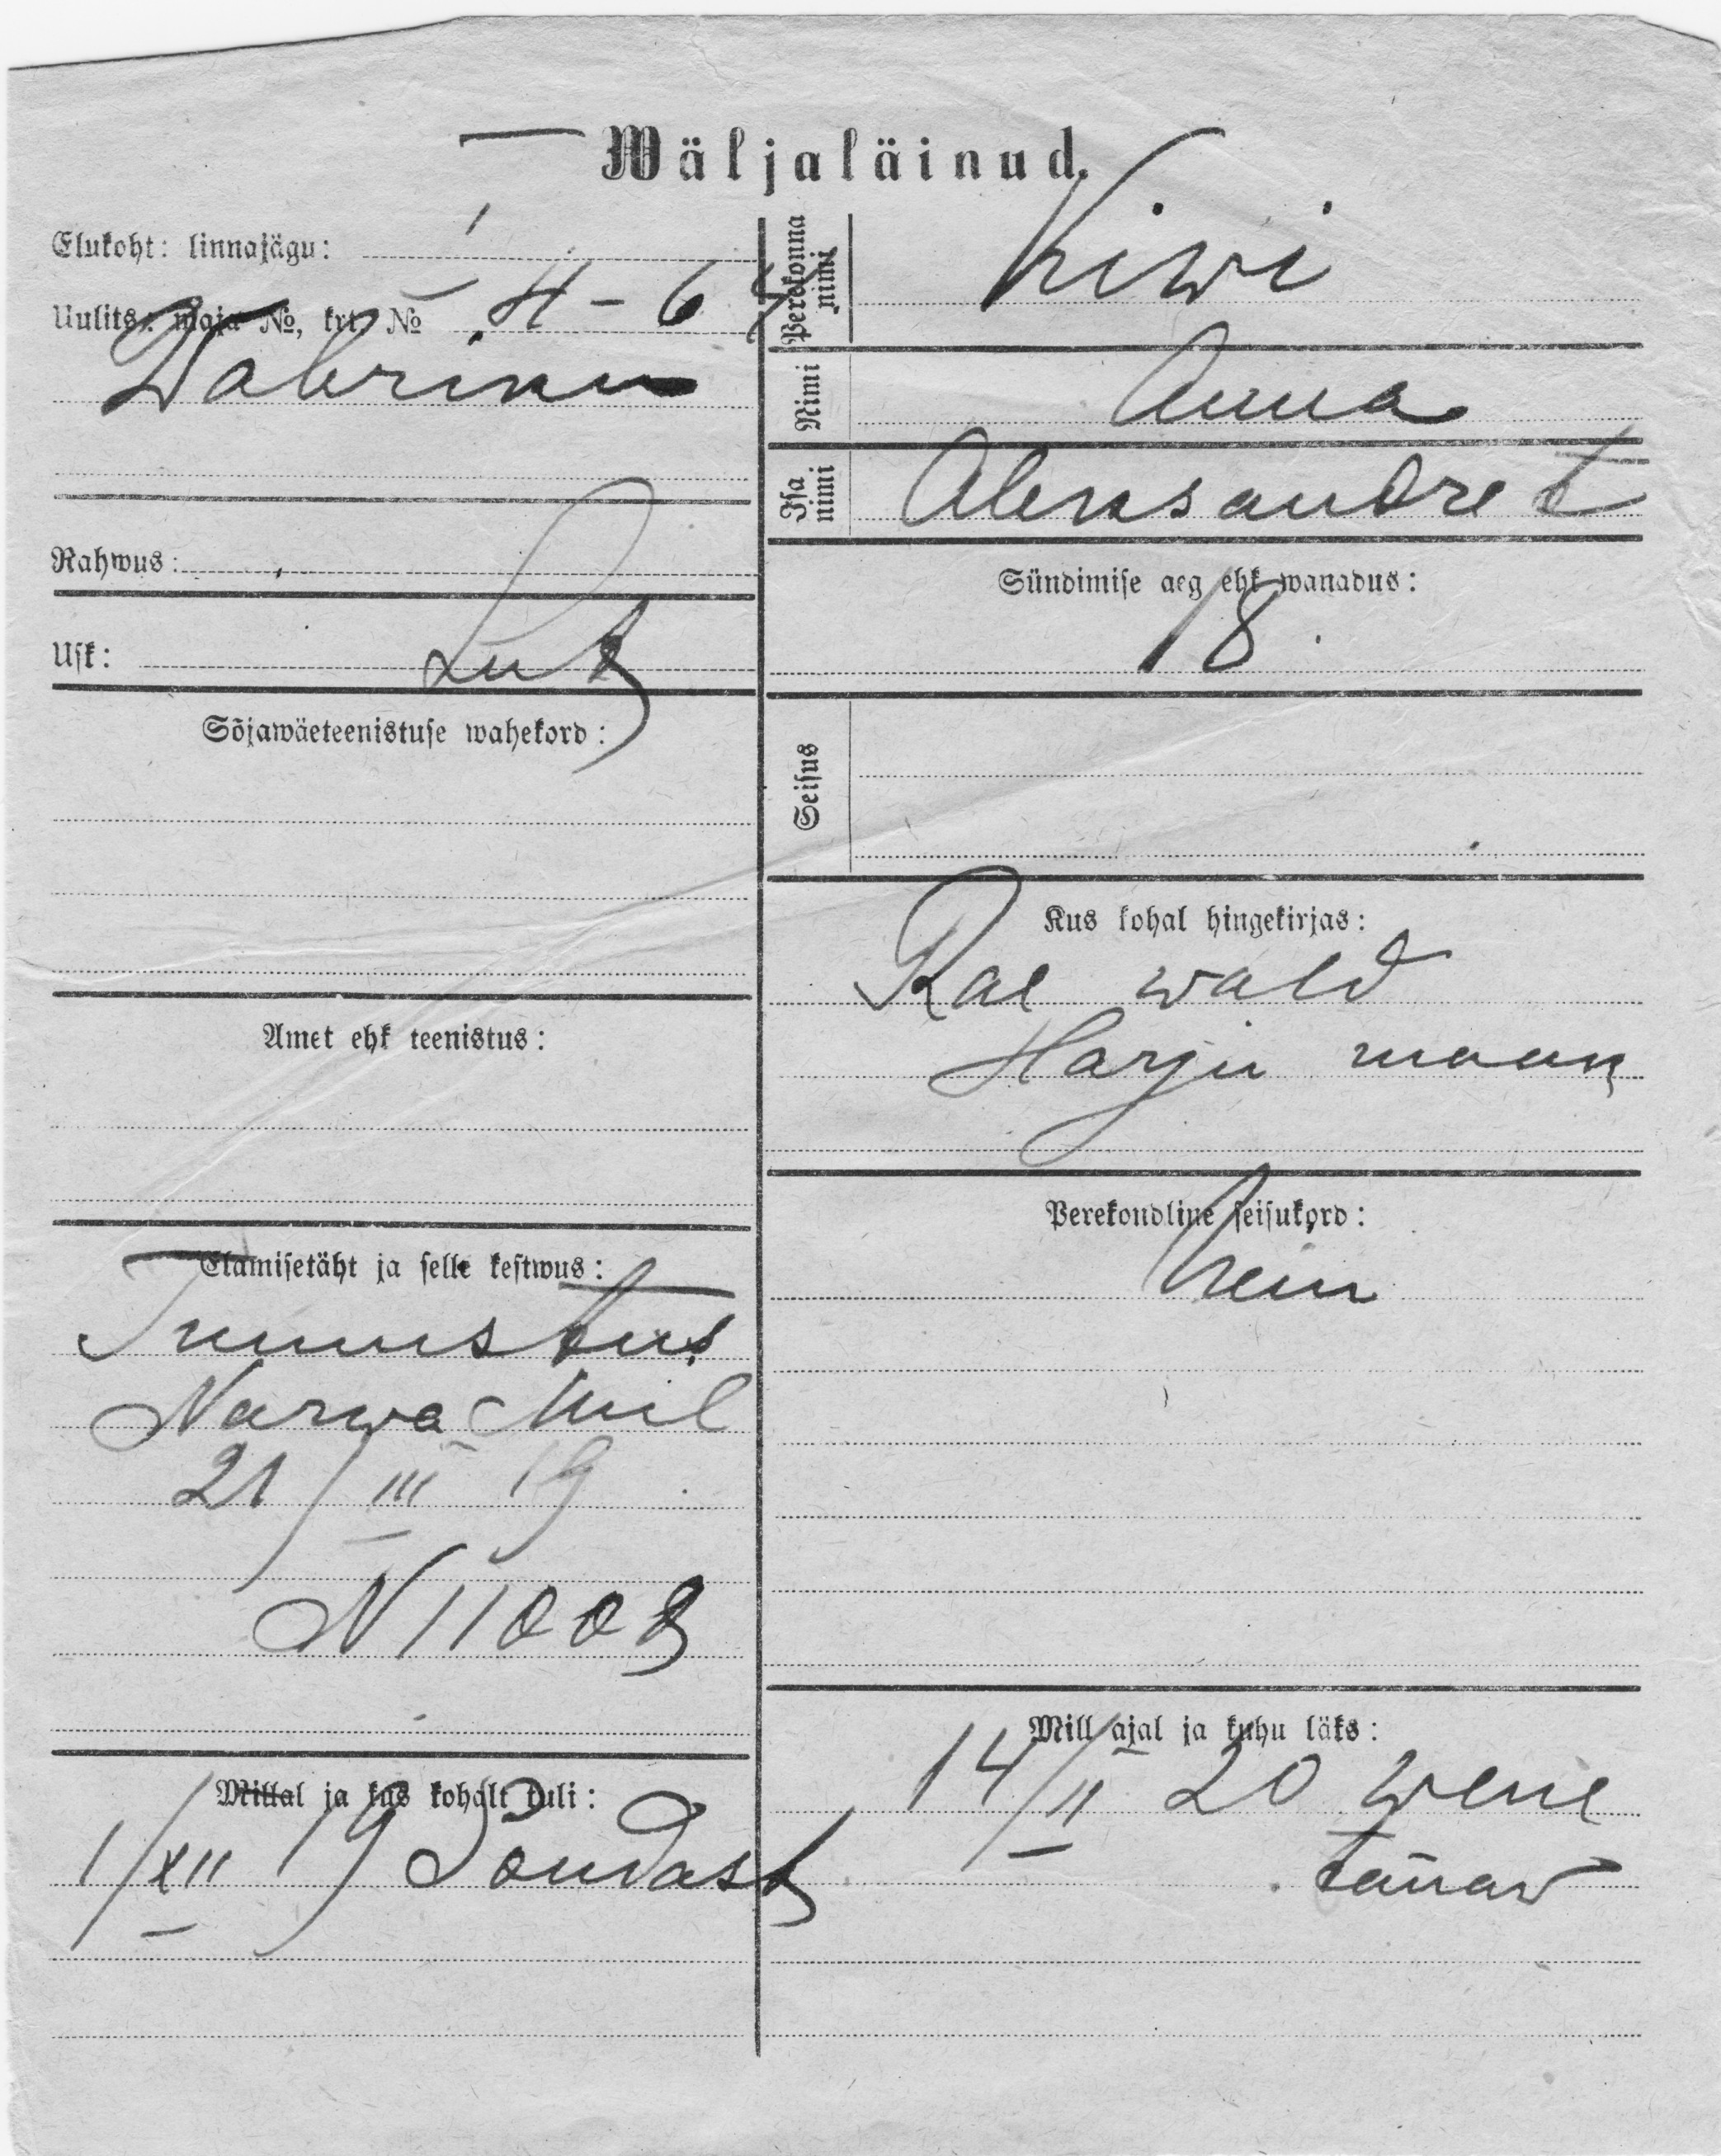 Wäljaläinud.
Elukoht: linnajägu:
Uulits: maja №, krt. № 4 - 6
Wabriku
Rahwus:
Usk: Lut
Sõjawäeteenistuse wahekord:
Amet ehk teenistus:
Elamisetäht ja selle kestwus:
Tunnistus
Narwa Mil
21/III 19
N 11008
Millal ja kus kohalt tuli:
1/XII 19 Sondast
Perekonna nimi Kiwi
Nimi Anna
Isa nimi Aleksandret
Sündimise aeg ehk wanadus:
18.
Seisus
Kus kohal hingekirjas:
Rae wald
Harju maan
Perekondline seisukord:
Mill ajal ja kuhu läks:
14/II 20 Wene
tänaw